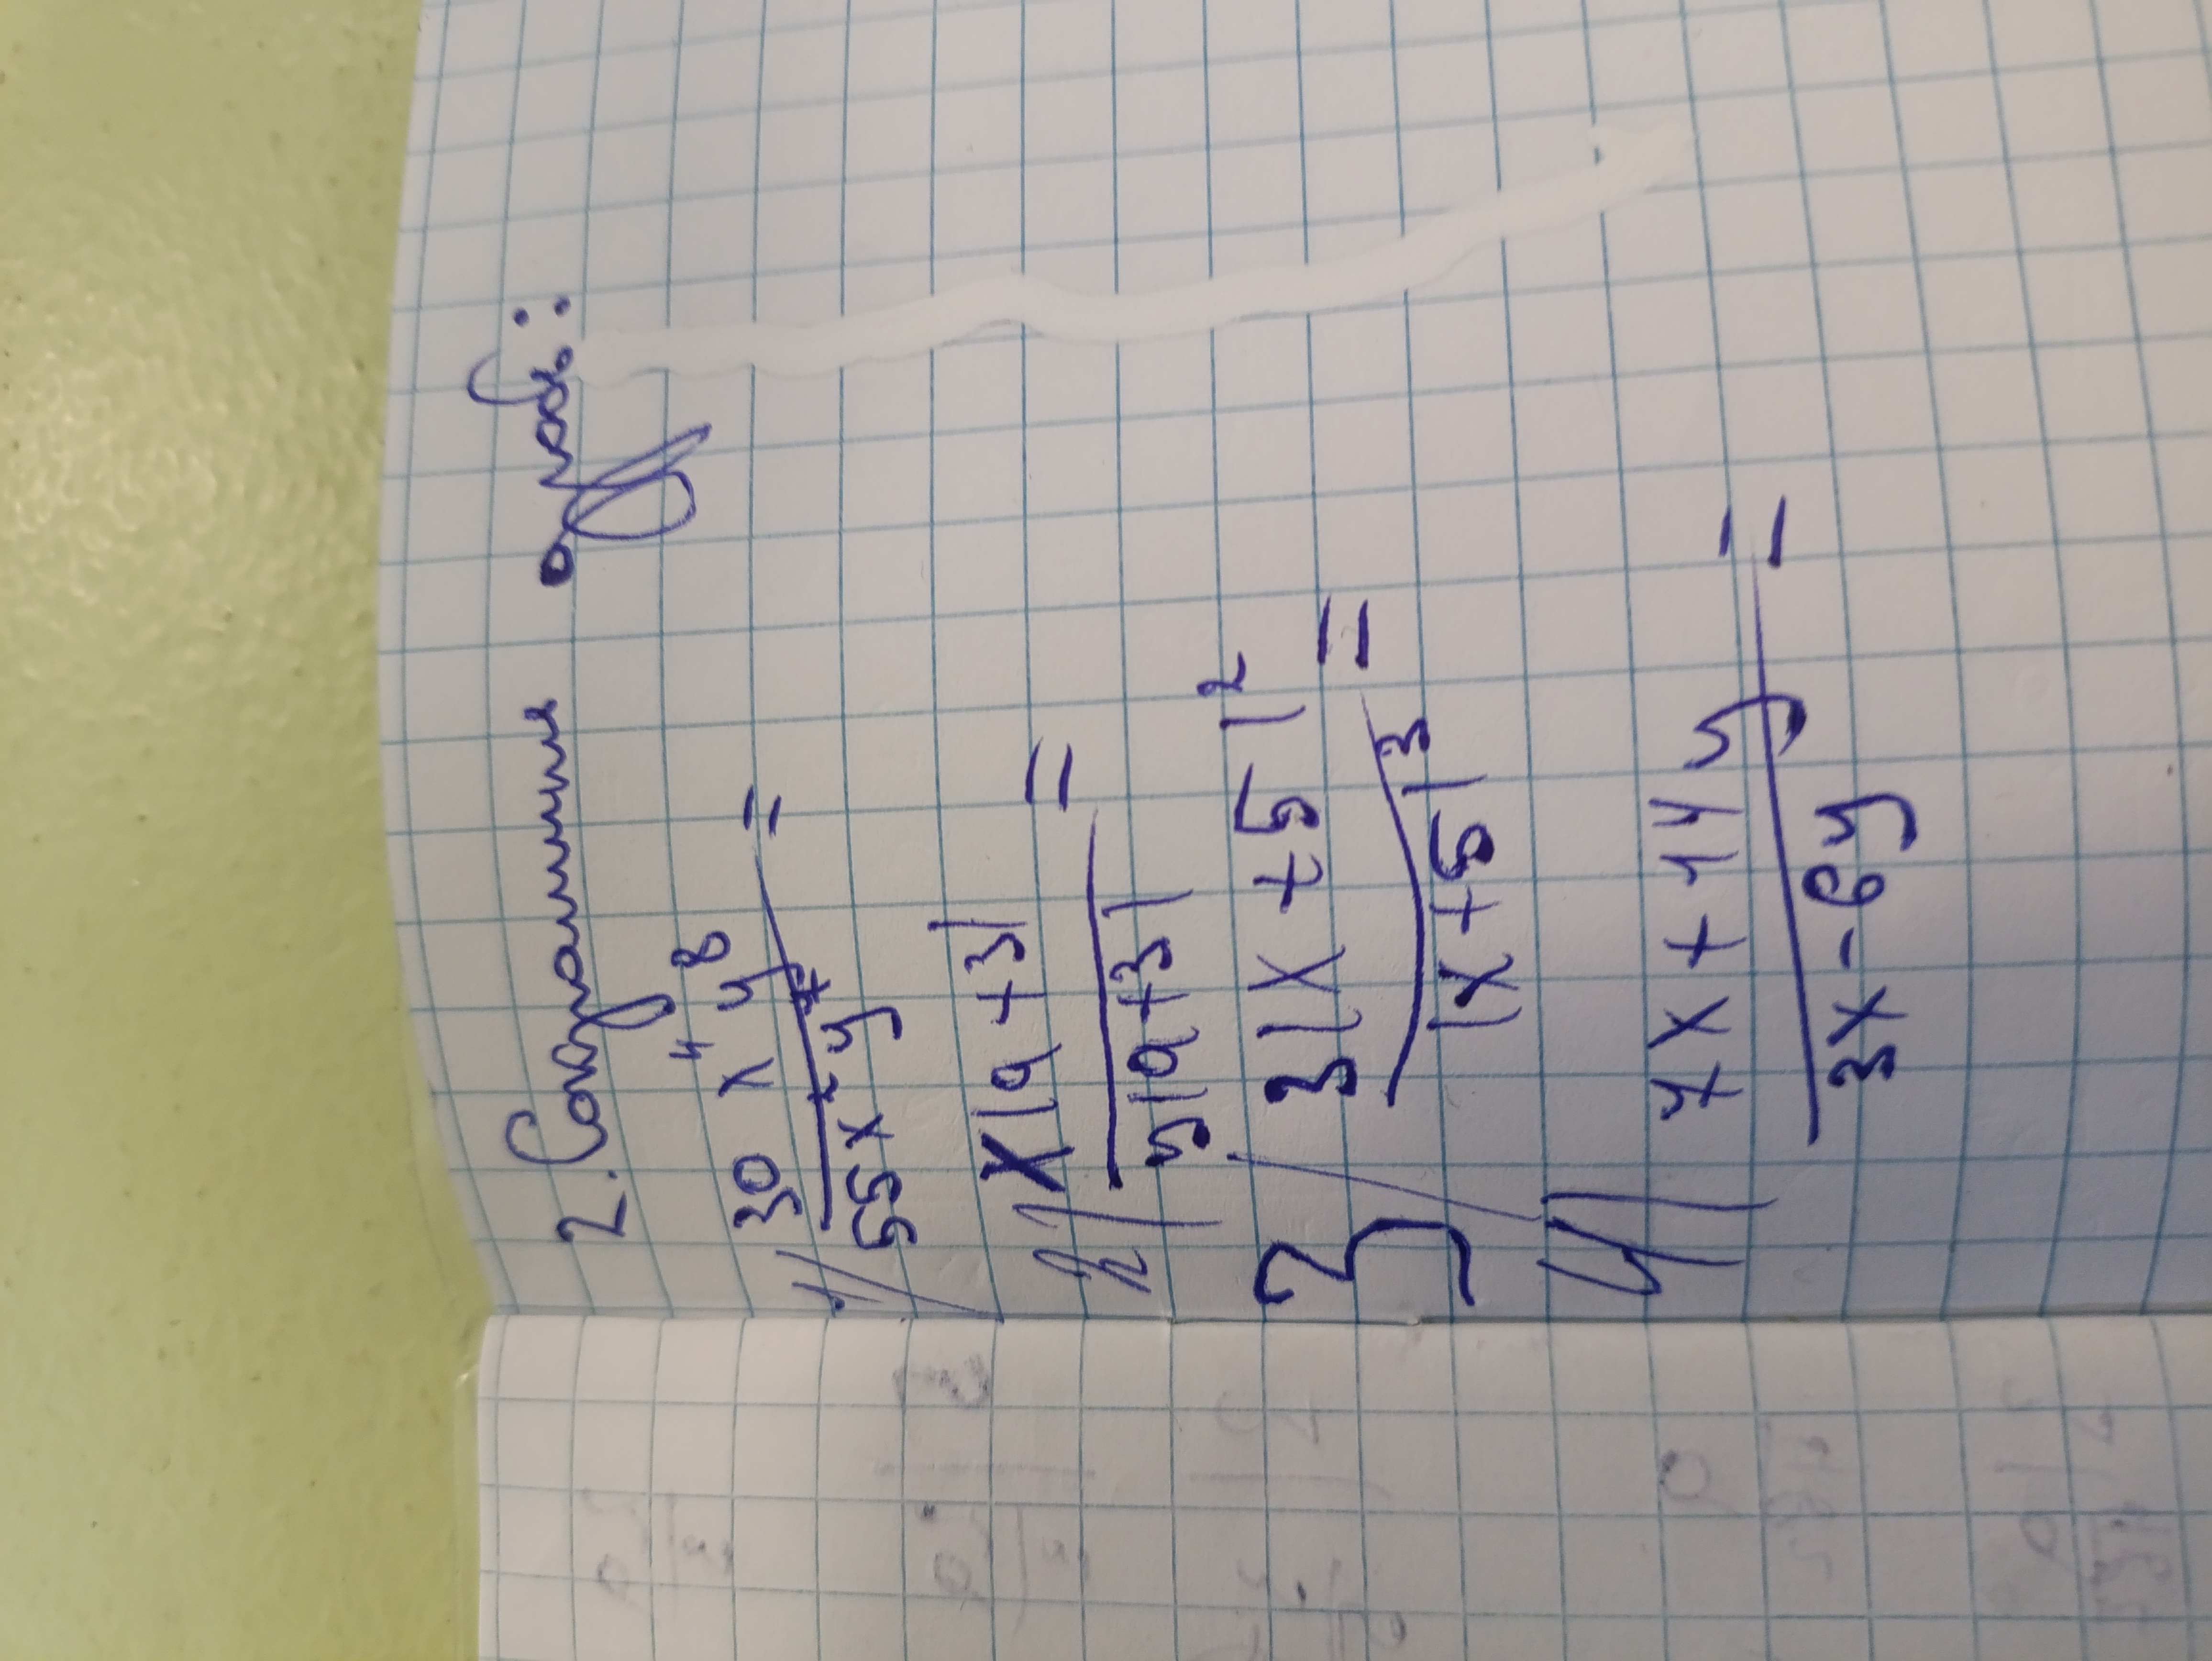 2. Сократите дробь:
1) 30 x⁴ y⁸ / 55 x² y⁷ =
2) x(a+3) / y(a+3) =
3) 3(x+5)² / (x+5)³ =
4) 7x + 14y / 3x - 6y =